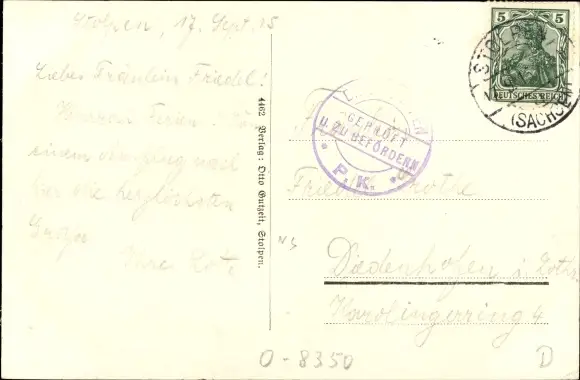 Stolpen, 17. Sept. 15
Liebes Fräulein Friedel!
Unseren Ferien
einem Ausflug nach
hier die herzlichsten
Grüße
Ihre Lotte
4462 Verlag: Otto Gutzeit, Stolpen.
5 5
DEUTSCHES REICH
STOLPEN
(SACHSEN)
GEPRÜFT
U. ZU BEFÖRDERN
P.K.
Diedenhofen i. Lothr.
Karolingerring 4
O-8350
D